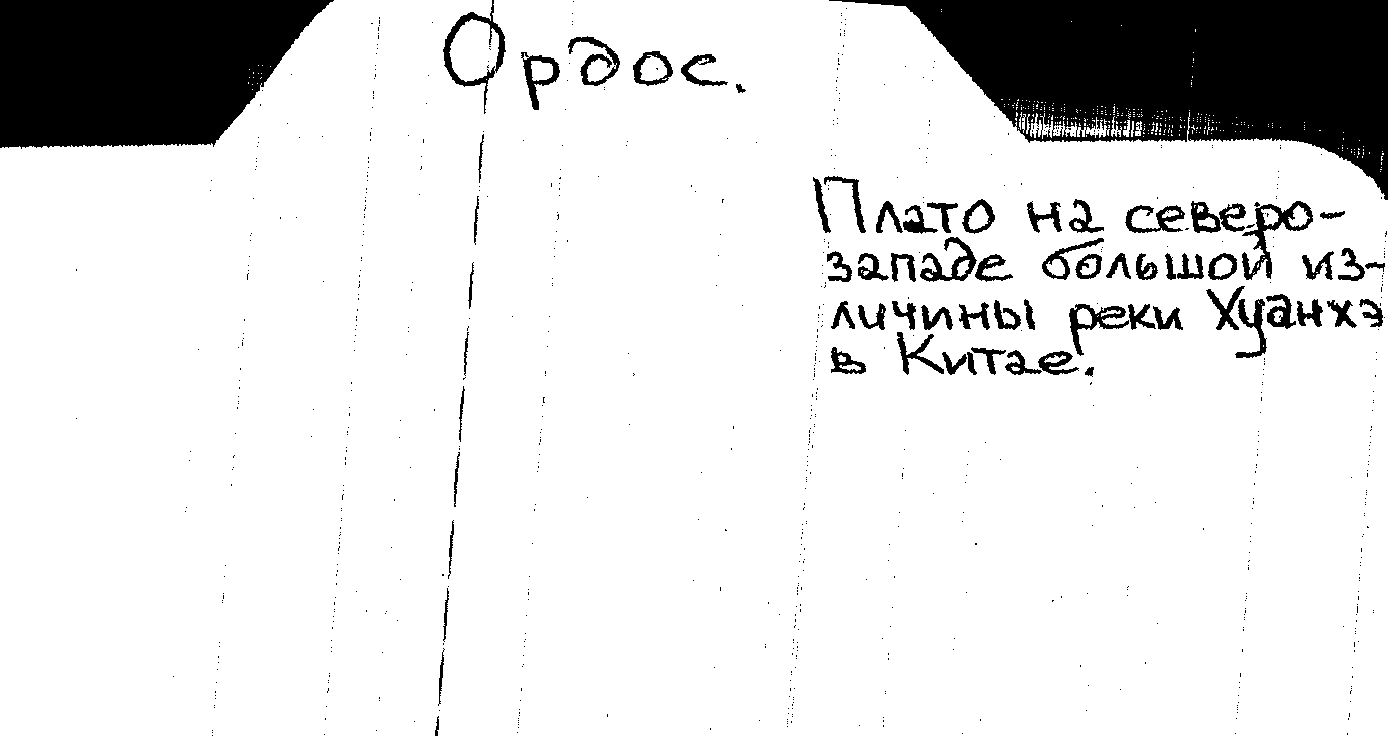 Ордос.
Плато на северо-
западе большой из-
личины реки Хуанхэ
в Китае.